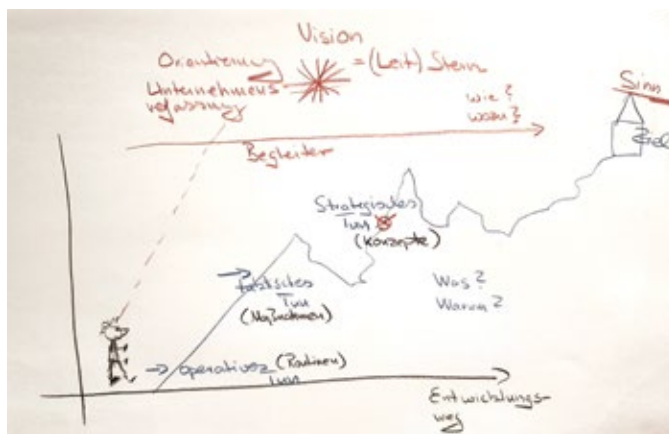 Vision
Orientierung
= (Leit) Stern
Unternehmens
verfassung
wie?
wozu?
Sinn
Ziel
Begleiter
Strategisches
Tun
(Konzepte)
→ taktisches
Tun
(Maßnahmen)
Was?
Warum?
→ operatives (Routinen)
Tun
Entwicklungs-
weg